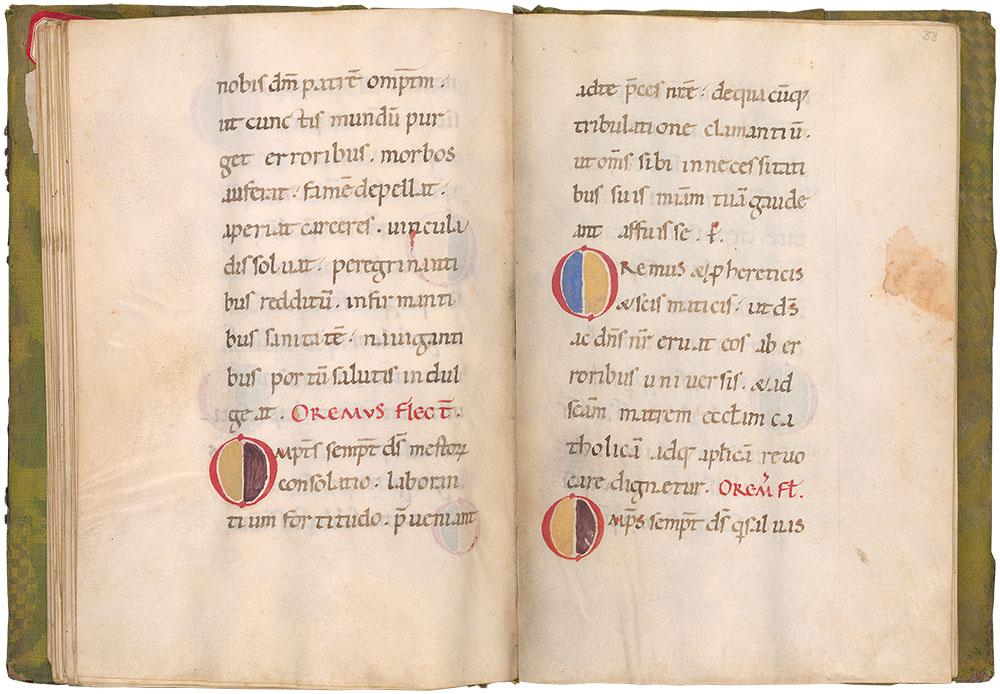 nobis dm̄ patrē omp̄tm·
ut cunctis mundū pur
get erroribus · morbos
auferat · famē depellat·
aperiat carceres · uincula
dissoluat · peregrinanti
bus redditū · infirmanti
bus sanitatē · nauiganti
bus portū salutis indul
geat · OREMVS flect̄ .
Omp̄ts sempt̄ ds̄ mestoꝝ
consolatio · laboran
tium fortitudo · p̄ueniant
38
adte p̄ces nr̄e · dequacūq;
tribulatione clamantiū ·
ut om̄s sibi innecessitati
bus suis miam̄ tuā gaude
ant affuisse ·
OREMUS & ꝓ hereticis
& scismaticis · ut ds̄
ac dn̄s nr̄ eruat eos ab er
roribus uniuersis · & ad
scām matrem ecclām ca
tholicā adq; aplicā reuo
care dignetur . OREM̄ Fl̄ .
Omp̄s sempt̄ ds̄ qui saluas